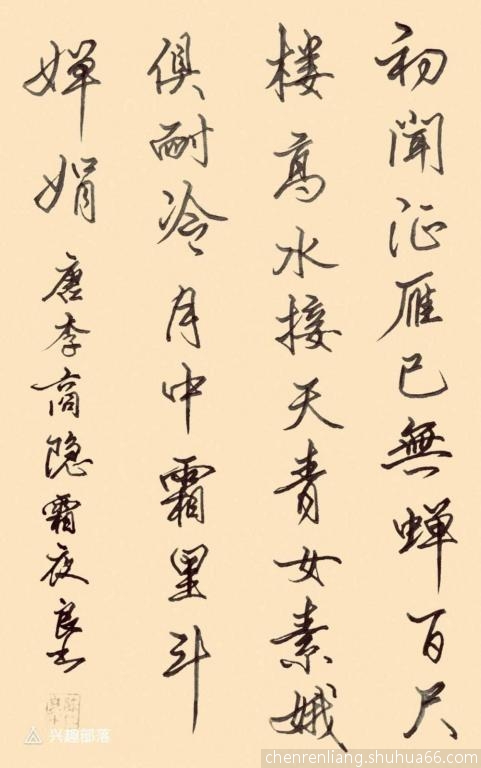 初聞征雁已無蝉百尺
楼高水接天青女素娥
俱耐冷月中霜里斗
婵娟 唐李商隐霜夜良书
兴趣部落
chenrenliang.shuhua66.com